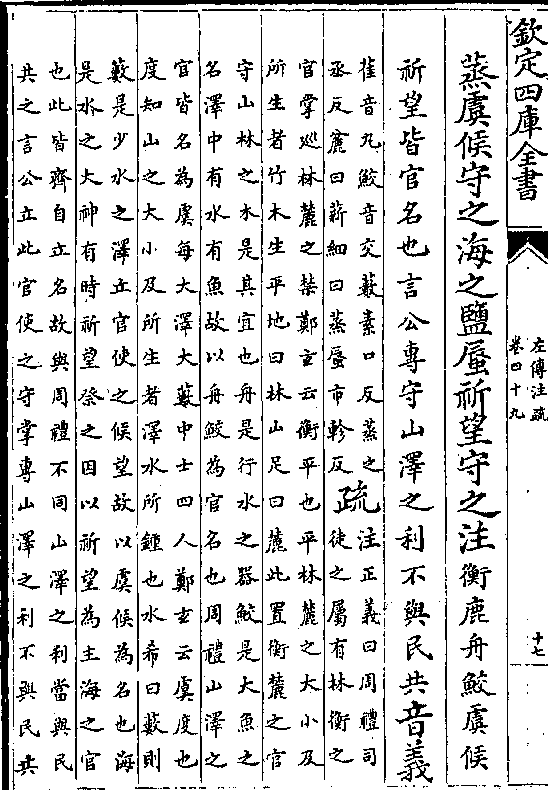 欽定四庫全書
左傳注疏
卷四十九
十七
蒸虞候守之海之鹽蜃祈望守之注衡鹿舟鮫虞候
祈望皆官名也言公專守山澤之利不與民共音義
萑音丸鮫音交藪素口反蒸之
丞反麄曰薪細曰蒸蜃市軫反疏注正義曰周禮司
徒之屬有林衡之
官掌巡林麓之禁鄭玄云衡平也平林麓之大小及
所生者竹木生平地曰林山足曰麓此置衡麓之官
守山林之木是其宜也舟是行水之器鮫是大魚之
名澤中有水有魚故以舟鮫為官名也周禮山澤之
官皆名為虞每大澤大藪中士四人鄭玄云虞度也
度知山之大小及所生者澤水所鍾也水希曰藪則
藪是少水之澤立官使之候望故以虞候為名也海
是水之大神有時祈望祭之因以祈望為主海之官
也此皆齊自立名故與周禮不同山澤之利當與民
共之言公立此官使之守掌專山澤之利不與民共